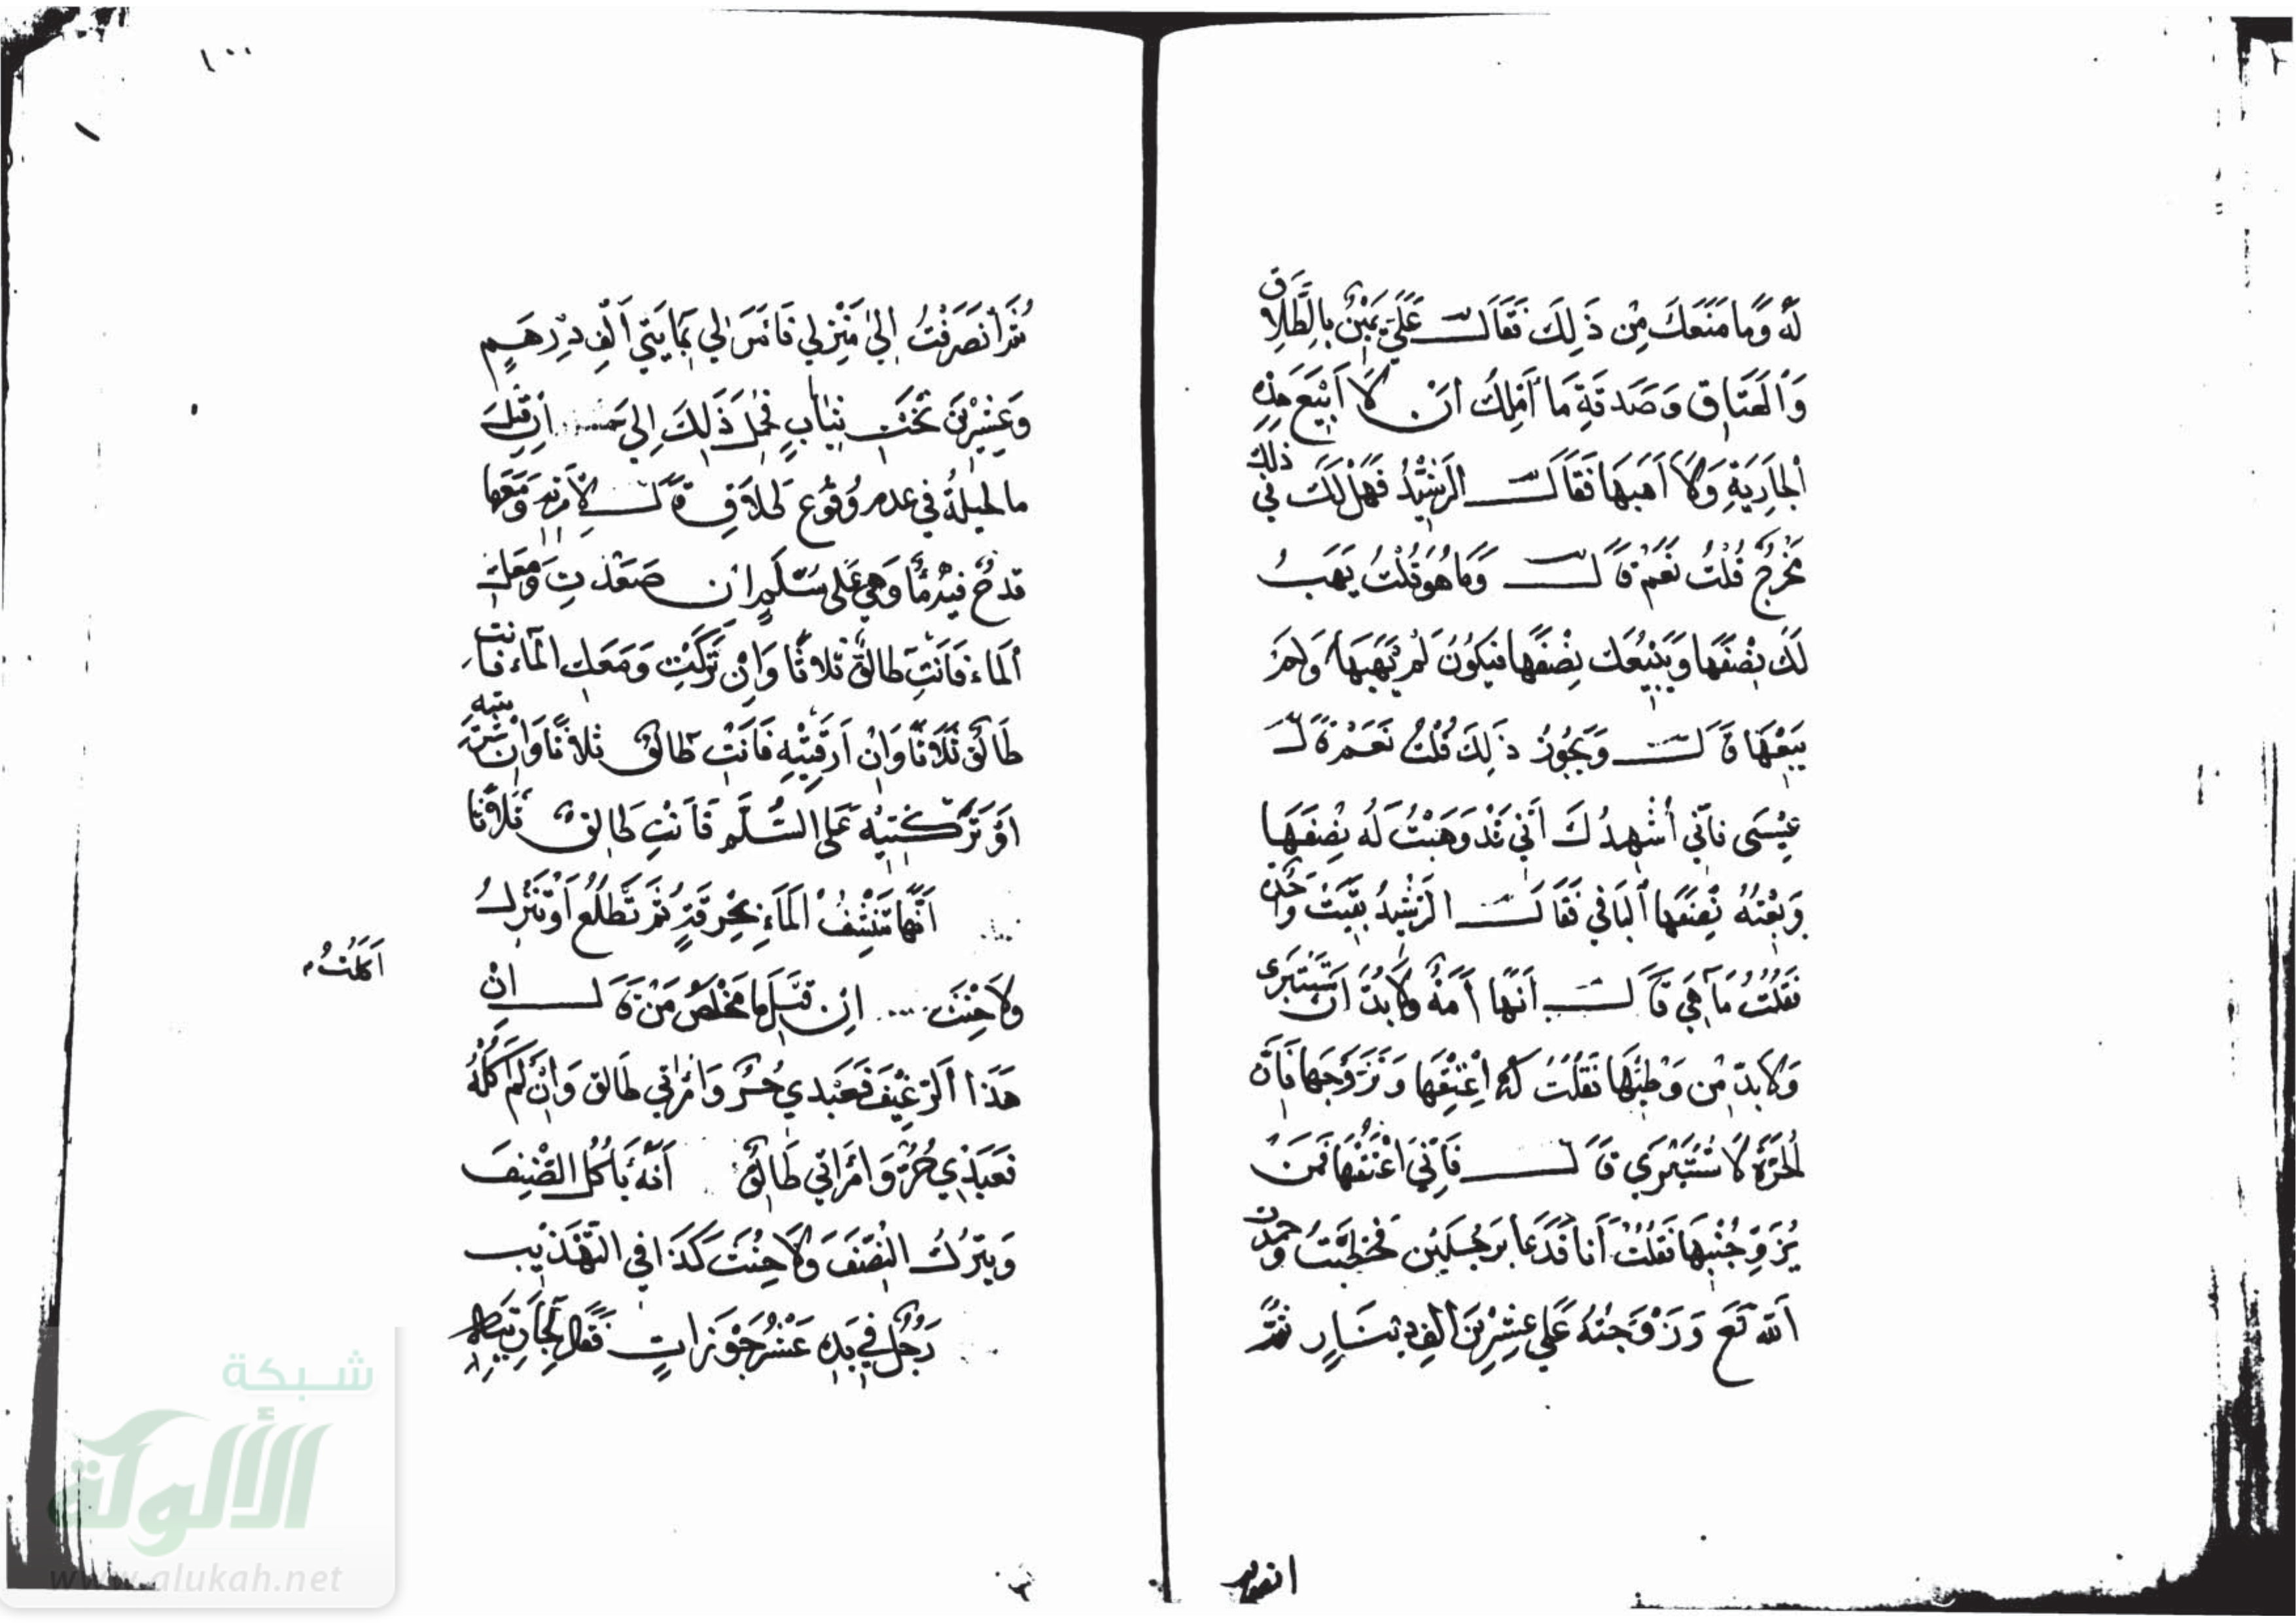 لَهُ وَمَا مَنَعَكَ مِنْ ذَلِكَ فَقَالَ عَلَيَّ يَمِيْنٌ بِالطَّلَاقِ
وَالْعَتَاقِ وَصَدَقَةِ مَا أَمْلِكُ أَنْ لَا أَبِيْعَ هَذِهِ
الْجَارِيَةِ وَلَا أَهَبَهَا فَقَالَ الرَّشِيْدُ فَهَلْ لَكَ فِي ذلك
مَخْرَجٌ قُلْتُ نَعَمْ قَالَ وَمَا هُوَ قُلْتُ يَهَبُ
لَكَ نِصْفَهَا وَيَبِيْعُكَ نِصْفَهَا فَيَكُوْنُ لَمْ يَهَبْهَا وَلَمْ
يَبِعْهَا قَالَ وَيَجُوْزُ ذَلِكَ قُلْتُ نَعَمْ قَالَ
عِيْسَى فَإِنِّي أُشْهِدُكَ أَنِّي قَدْ وَهَبْتُ لَهُ نِصْفَهَا
وَبِعْتُهُ نِصْفَهَا الْبَاقِي فَقَالَ الرَّشِيْدُ بَقِيَتْ وَاحِدَة
فَقُلْتُ مَا هِيَ قَالَ أَنَّهَا أَمَةٌ وَلَا بُدَّ أَنْ تَسْتَبْرِي
وَلَا بُدَّ مِنْ وَطْئِهَا فَقُلْتُ لَهُ أَعْتِقْهَا وَتَزَوَّجْهَا فَإِنَّ
الْحُرَّةَ لَا تُسْتَبْرَى قَالَ فَإِنِّي أَعْتَقْتُهَا فَمَن
يُزَوِّجُنِيهَا فَقُلْتُ أَنَا فَدَعَا بِرَجُلَيْنِ فَخَطَبْتُ وَحمدت
اللّه تَعَ وَزَوَّجْتُهُ عَلَى عِشْرِيْنَ أَلْفِ دِيْنَارٍ ثُمَّ
انصرفت
١٠٠
ثُمَّ انْصَرَفْتُ إِلَى مَنْزِلِي فَأَمَرَ لِي بِمَايَتَي أَلْفِ دِرْهَمٍ
وَعِشْرِيْنَ تَخْتَ ثِيَابٍ فَحُمِلَ ذَلِكَ إِلَيَّ إِنْ قِيلَ
مَا الْحِيلَةُ فِي عَدَمِ وُقُوْعِ طَلَاقِ قَالَ لِامْرَأَتِهِ وَمَعَهَا
قَدَحٌ فِيْهِ مَاءٌ وَهِيَ عَلَى سُلَّمٍ إِنْ صَعَدْتِ وَمَعَكِ
الْمَاء فَأَنْتِ طَالِقٌ ثَلَاثًا وَإِنْ نَزَلْتِ وَمَعَكِ الْمَاء فَأَنت
طَالِقٌ ثَلَاثًا وَإِنْ أَرَقْتِيْهِ فَأَنْتِ طَالِقٌ ثَلَاثًا وَإِنْ شَرِبْتِيهِ
أَوْ تَرَكْتِيْهِ عَلَى السُّلَّمِ فَأَنْتِ طَالِقٌ ثَلَاثًا
أَنَّهَا تَنَشِّفُ الْمَاءَ بِخِرْقَةٍ ثُمَّ تَطْلُعُ أَوْ تَنْزِلُ
وَلَا حِنْثَ إِنْ قِيْلَ مَا مَخْلَصُ مَنْ قَالَ إِنْ
أَكَلْتُ
هَذَا الرَّغِيْفَ فَعَبْدِي حُرٌّ وَامْرَأَتِي طَالِق وَإِنْ لَمْ آكُلْهُ
فَعَبْدِي حُرٌّ وَامْرَأَتِي طَالِقٌ أَنَّهُ يَأْكُلُ النِّصْفَ
وَيَتْرُكُ النِّصْفَ وَلَا حِنْثَ كَذَا فِي التَّهْذِيْبِ
رَجُلٌ فِي يَدِهِ عَشْرُ جَوْزَاتٍ فَقَالَ لِجَارِيَتِهِ
شبكة
الألوكة
www.alukah.net